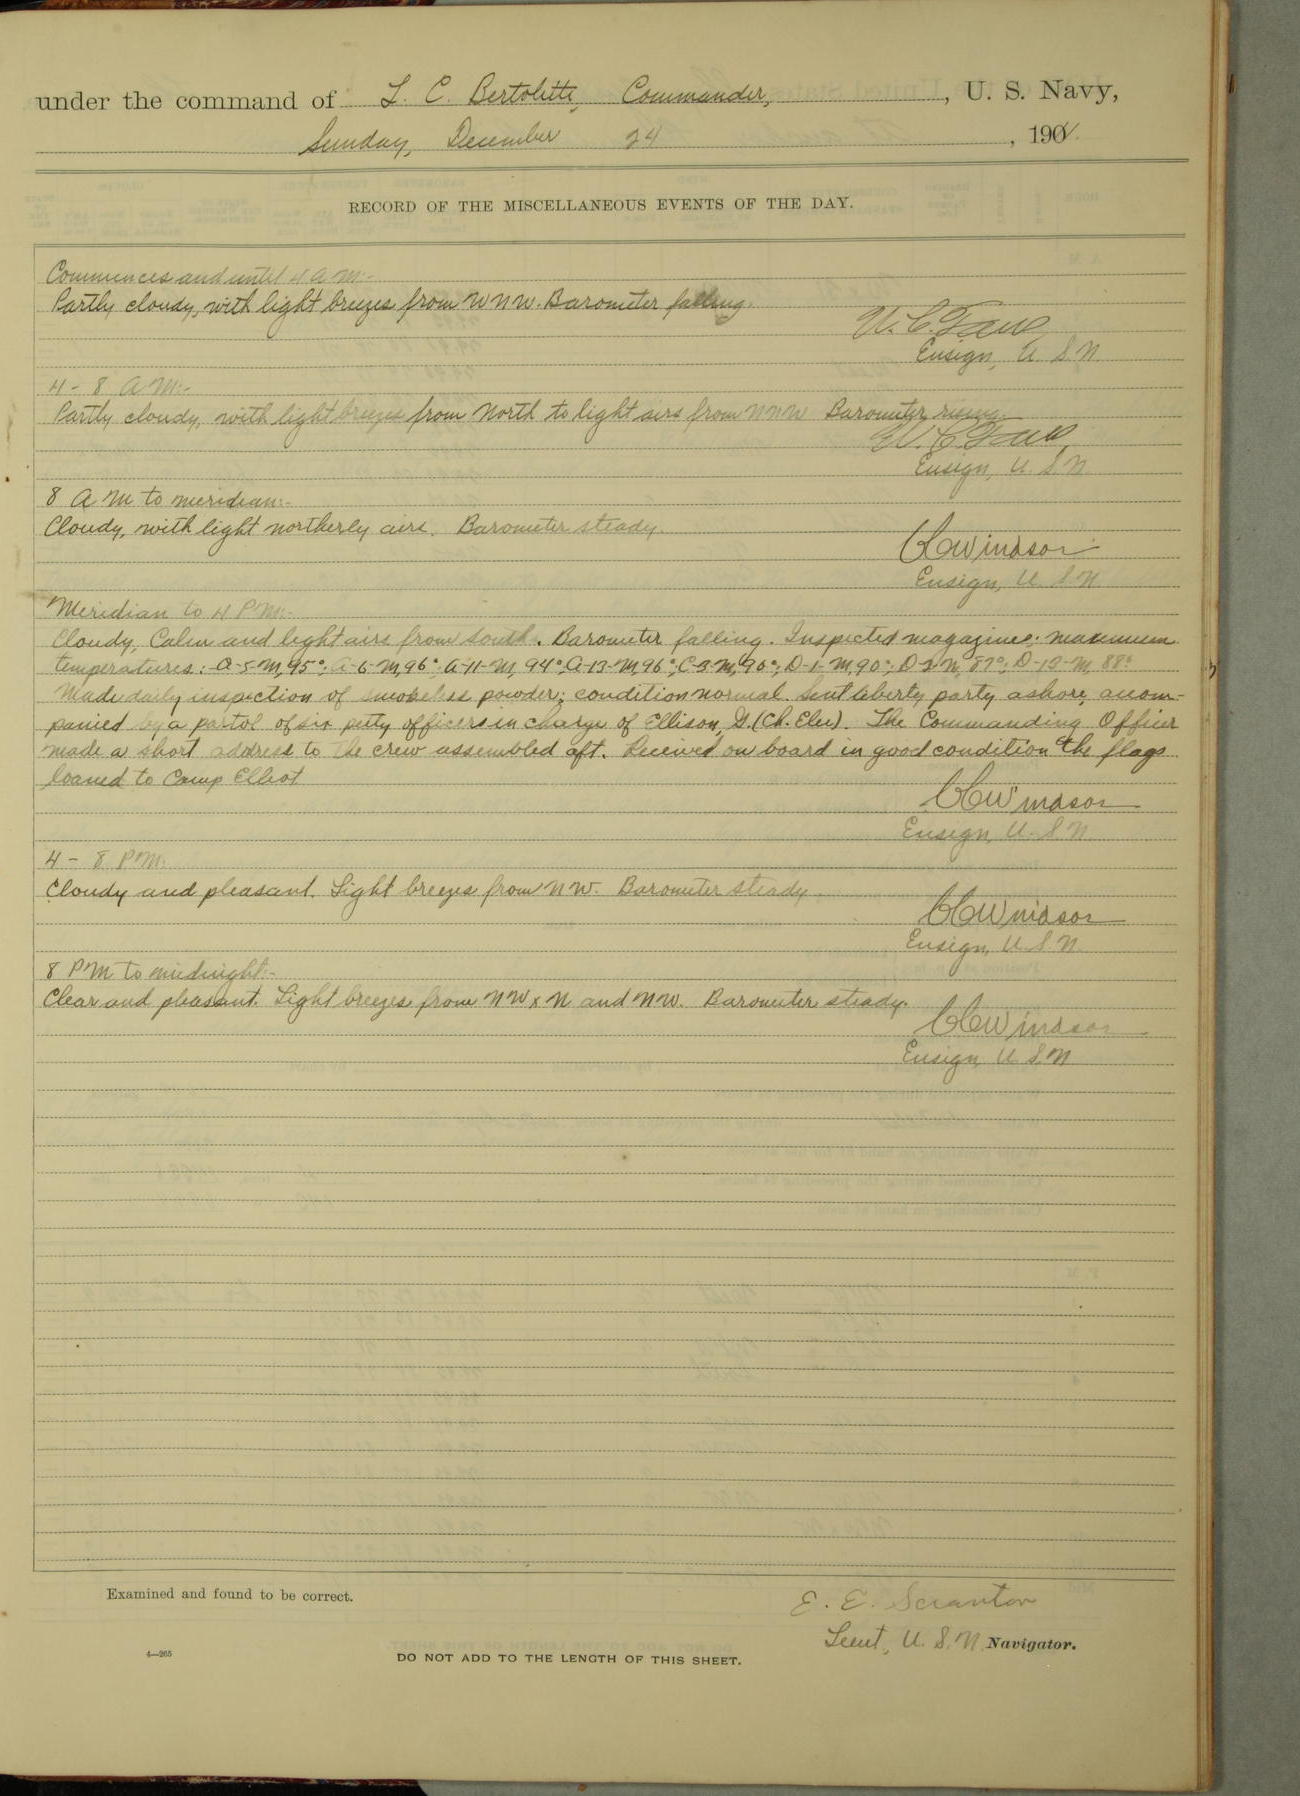 under the command of L. C. Bertolette, Commander, , U. S. Navy,
Sunday, December 24 , 190
RECORD OF THE MISCELLANEOUS EVENTS OF THE DAY.
Commences and until 4 A M:-
Partly cloudy, with light breezes from W N W. Barometer falling.
W. C.
Ensign, U. S. N.
4 - 8 A M:-
Partly cloudy, with light breezes from North to light airs from N N W Barometer rising.
W. C.
Ensign, U. S. N
8 A M to meridian:-
Cloudy, with light northerly airs. Barometer steady.
Windsor
Ensign, U. S. N
Meridian to 4 P M:-
Cloudy, Calm and light airs from South. Barometer falling. Inspected magazines; maximum
temperatures: A-5-M, 95°; A-6-M, 96°; A-11-M, 94°; A-13-M, 96°; C-3-M, 90°; D-1-M, 90°; D-2-M, 87°; D-12-M, 88°
Made daily inspection of smokeless powder; condition normal. Sent liberty party ashore, accom-
panied by a partol of six petty officers in charge of Ellison, G. (Ch. Elec). The Commanding Officer
made a short address to the crew assembled aft. Received on board in good condition the flags
loaned to Camp Elliot
Windsor
Ensign, U. S. N
4 - 8 P M:
Cloudy and pleasant. Light breezes from N W. Barometer steady
Windsor
Ensign, U. S. N.
8 P M to midnight:-
Clear and pleasant. Light breezes from N W x N and N W. Barometer steady.
Windsor
Ensign U. S. N
Examined and found to be correct.
E. E. Scranton
Lieut, U. S. N. Navigator.
4—265
DO NOT ADD TO THE LENGTH OF THIS SHEET.